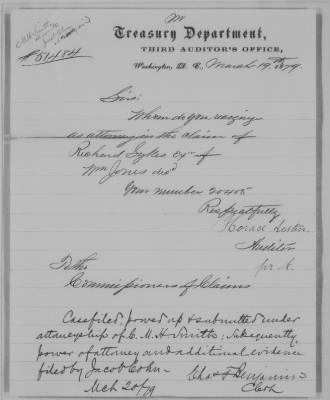 #51484
Treasury Department,
THIRD AUDITOR'S OFFICE,
Washington, D. C., March 19th 1879.
Sirs:
Whom do you recognize
as attorney in the claim of
Richard Sykes Exr of
Wm Jones decd
Your number 20405
Respectfully
Horace Austin
Auditor
pr A.
To the
Commissioners of Claims
Case filed, proved up & submitted under
attorneyship of C. M. H. Smith: Subsequently
power of attorney and additional evidence
filed by Jacob Cohn -
Chas F Benjamin
Clerk
Mch 20/79